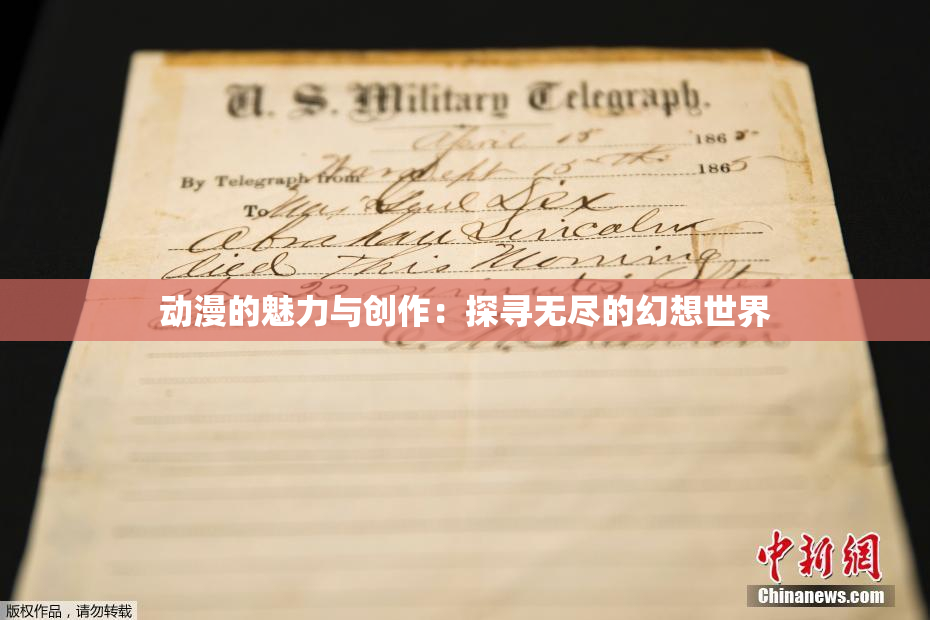 U. S. Military Telegraph.
April 15 1865
By Telegraph from War Dept 15th 1865
To Maj Genl Dix
Abraham Lincoln
died This Morning
at 22 minutes after
动漫的魅力与创作：探寻无尽的幻想世界
E. M. Stanton
中新网
Chinanews.com
版权作品，请勿转载